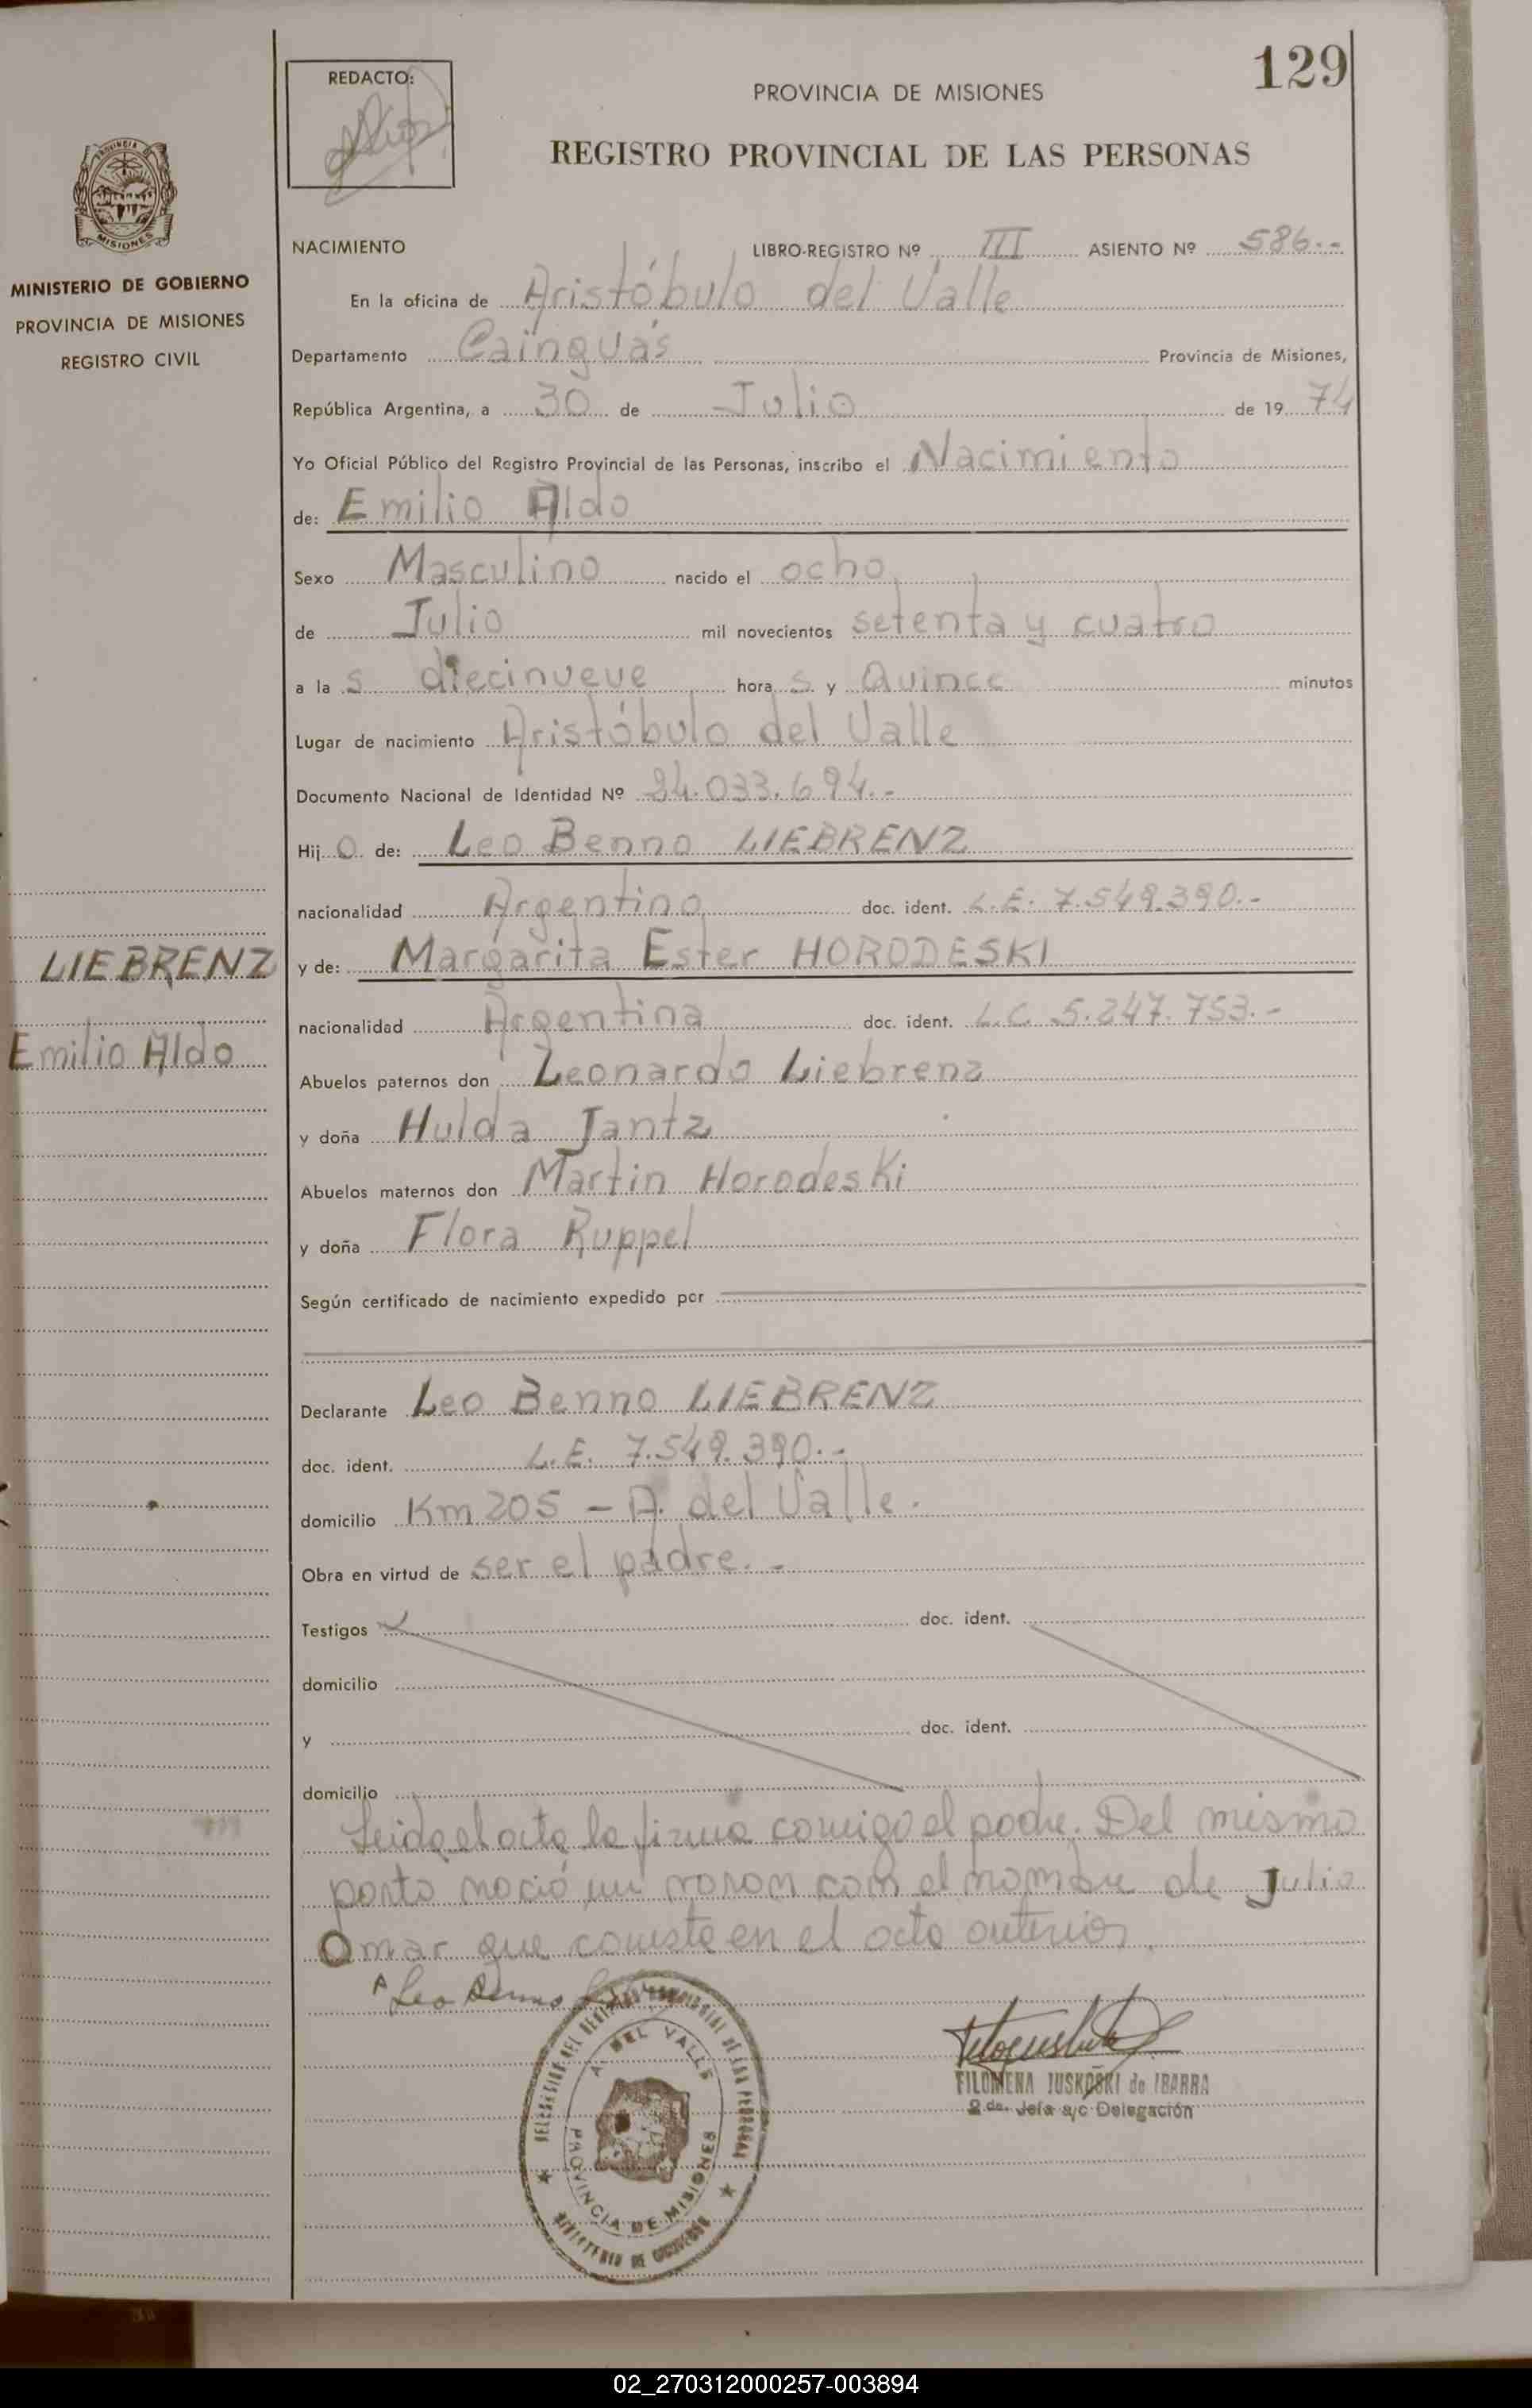 129
REDACTO:
PROVINCIA DE MISIONES
REGISTRO PROVINCIAL DE LAS PERSONAS
MISIONES
MINISTERIO DE GOBIERNO
PROVINCIA DE MISIONES
REGISTRO CIVIL
NACIMIENTO LIBRO-REGISTRO Nº III ASIENTO Nº 586.-
En la oficina de Aristóbulo del Valle
Departamento Cainguás Provincia de Misiones,
República Argentina, a 30 de Julio de 19 74
Yo Oficial Público del Registro Provincial de las Personas, inscribo el Nacimiento
de: Emilio Aldo
Sexo Masculino nacido el ocho
de Julio mil novecientos setenta y cuatro
a la s diecinueve hora s y Quince minutos
Lugar de nacimiento Aristóbulo del Valle
Documento Nacional de Identidad Nº 24.033.694.-
Hij o de: Leo Benno LIEBRENZ
nacionalidad Argentino doc. ident. L.E. 7.549.390.-
LIEBRENZ
y de: Margarita Ester HORODESKI
nacionalidad Argentina doc. ident. L.C. 5.247.753.-
Emilio Aldo
Abuelos paternos don Leonardo Liebrenz
y doña Hulda Jantz
Abuelos maternos don Martin Horodeski
y doña Flora Ruppel
Según certificado de nacimiento expedido por
Declarante Leo Benno LIEBRENZ
doc. ident. L.E. 7.549.390.-
domicilio Km 205 - A. del Valle.
Obra en virtud de ser el padre.-
Testigos doc. ident.
domicilio
y doc. ident.
domicilio
Leida el acta la firma conmigo el padre. Del mismo
parto nació un varon con el nombre de Julio
Omar que consta en el acta anterior.
Leo Benno
DELEGACION DEL REGISTRO PROVINCIAL DE LAS PERSONAS
A. DEL VALLE
PROVINCIA DE MISIONES
MINISTERIO DE GOBIERNO
FILOMENA JUSKOSKI de IBARRA
2 da. Jefa a/c Delegación
02_270312000257-003894